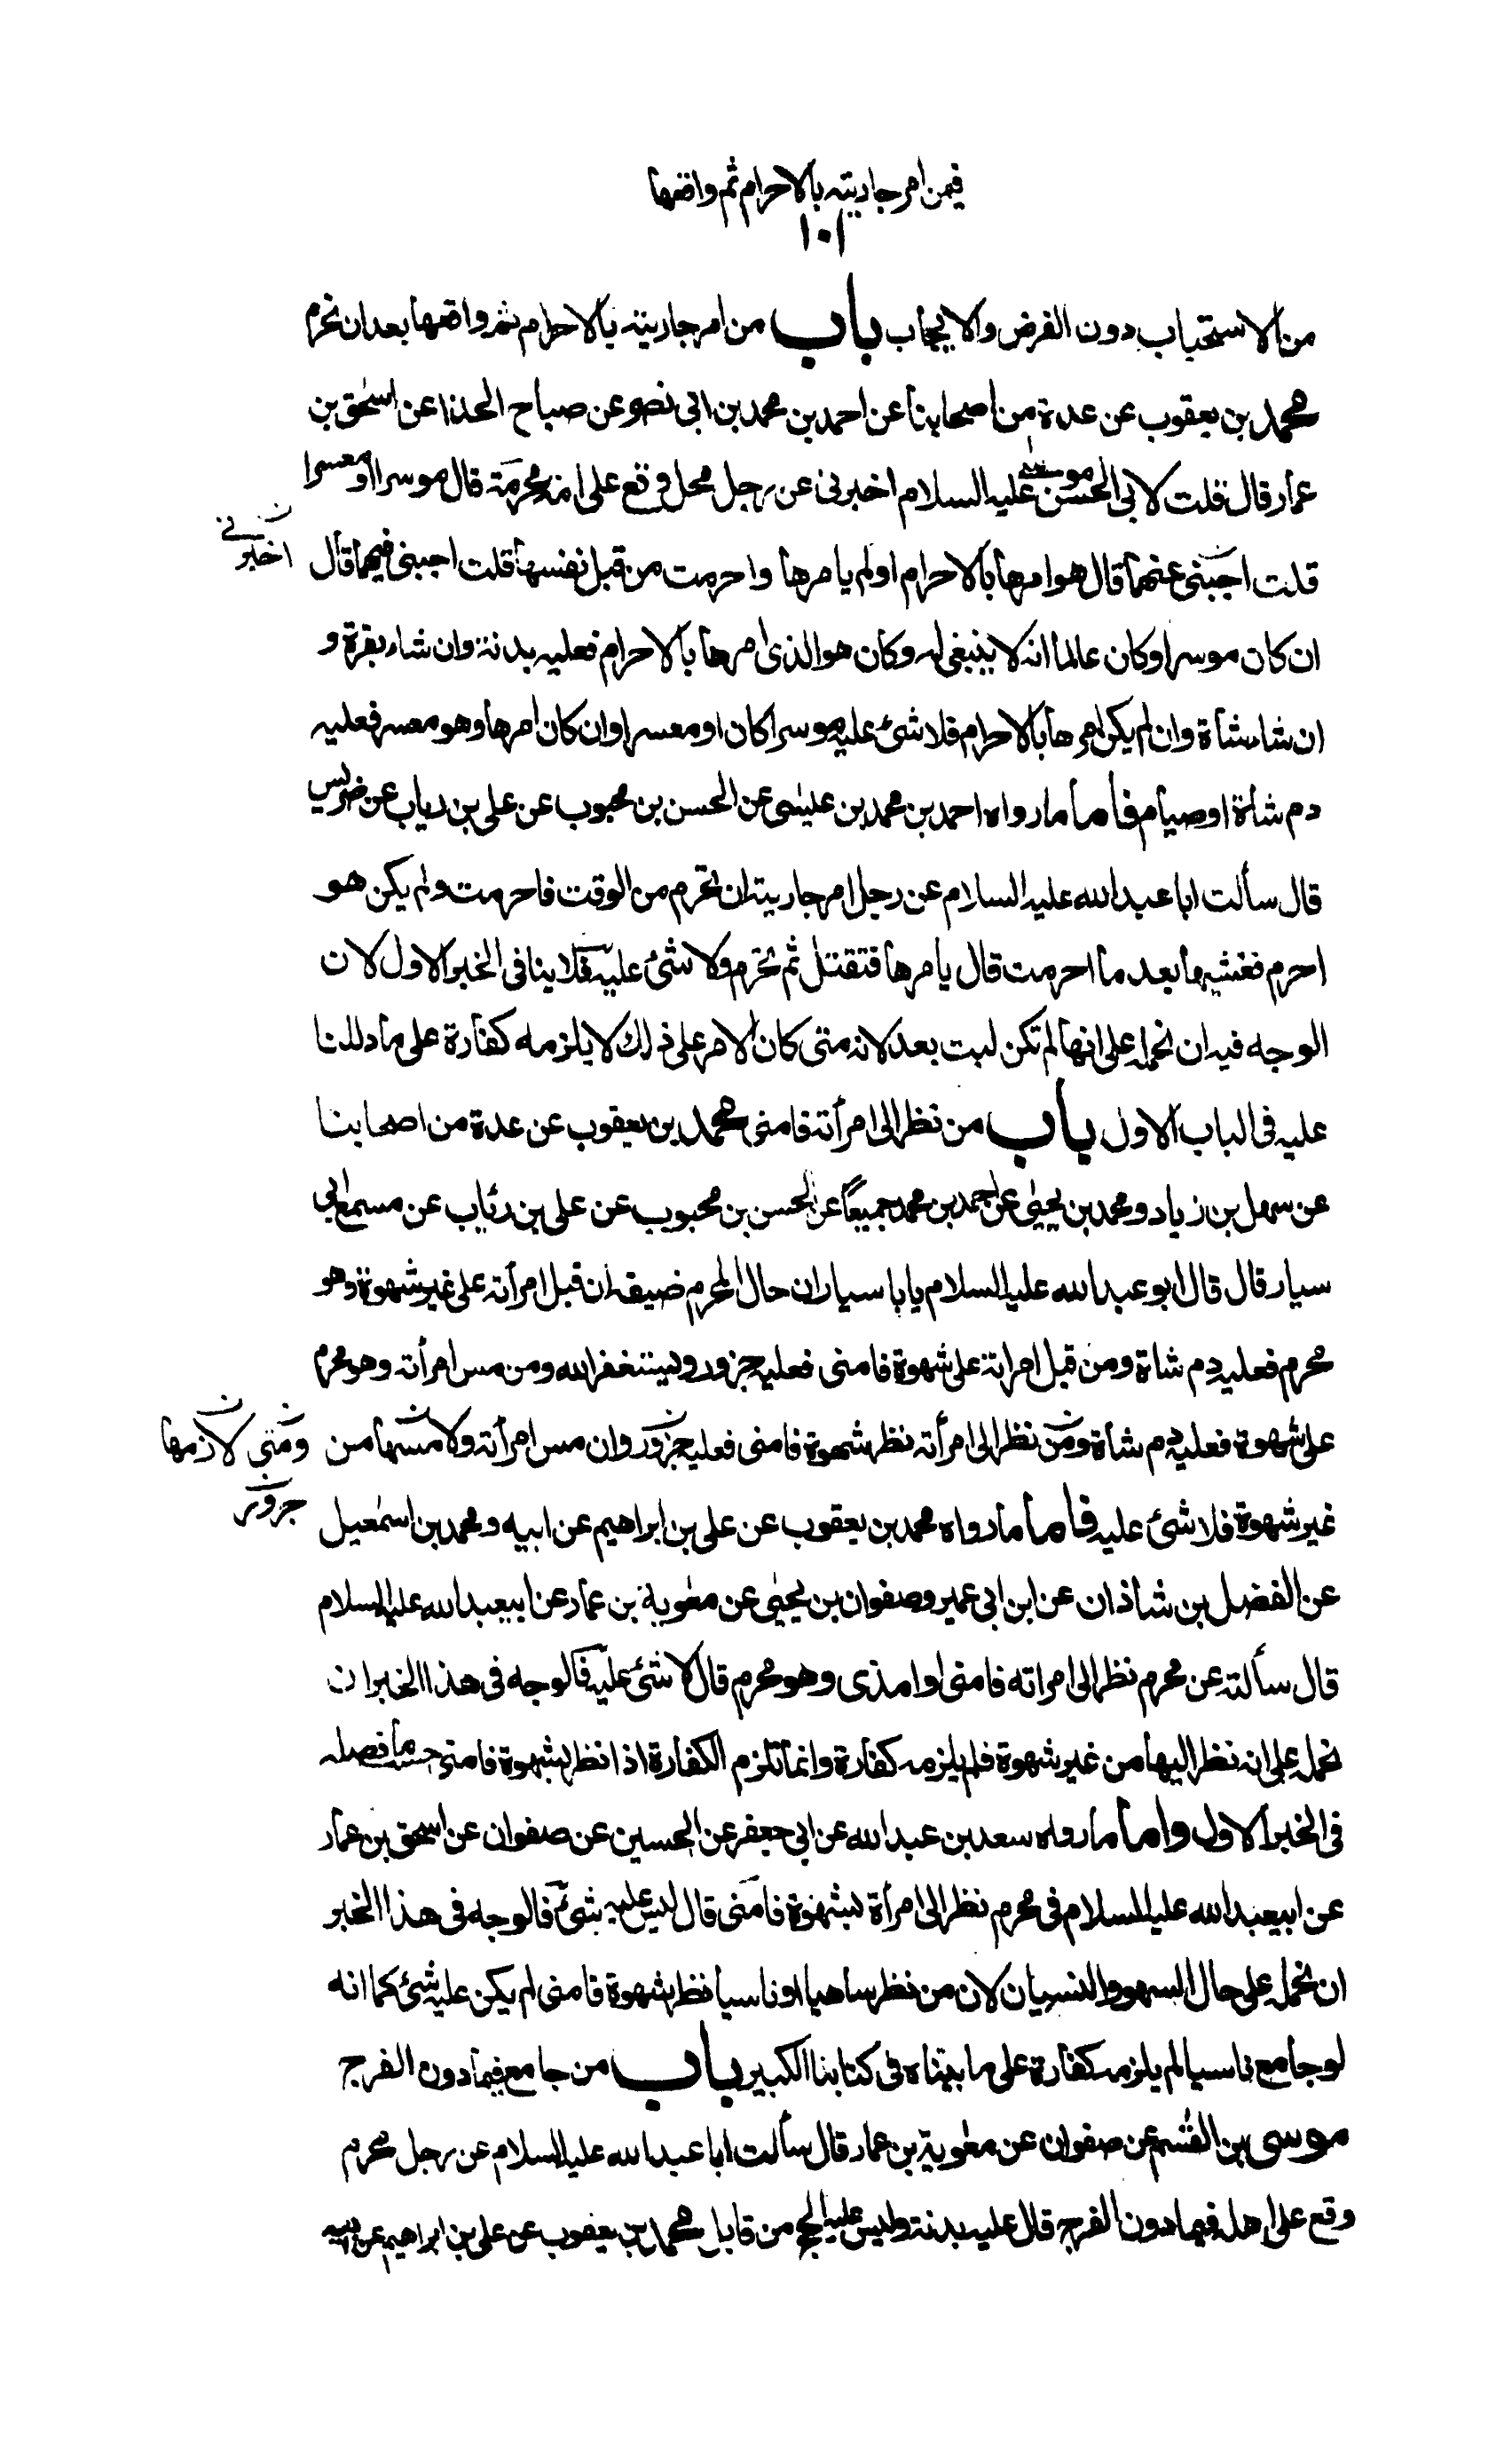 فيمن امر جاريته بالاحرام ثم واقعها
١٠١
من الاستحباب دون الفرض والايجاب باب من امر جاريته بالاحرام ثم واقعها بعد ان تحرم
محمد بن يعقوب عن عدة من اصحابنا عن احمد بن محمد بن ابى نصر عن صباح الحذا عن اسحٰق بن
عمار قال قلت لابى الحسن موسىٰ عليه السلام اخبرنى عن رجل محل وقع على امة محرمة قال موسرا او معسرا
قلت اجبنى عنهما قال هو امرها بالاحرام اولم يامرها واحرمت من قبل نفسها قلت اجبنى فيهما قال
اخبرنى
ان كان موسرا وكان عالما انه لا ينبغى له وكان هو الذى امرها بالاحرام فعليه بدنة وان شاء بقرة و
ان شاء شاة وان لم يكن امرها بالاحرام فلا شئ عليه موسرا كان او معسرا وان كان امرها وهو معسر فعليه
دم شاة او صيام فاما ما رواه احمد بن محمد بن عليسى عن الحسن بن محبوب عن على بن رياب عن ضريس
قال سألت ابا عبد الله عليه السلام عن رجل امر جاريته ان تحرم من الوقت فاحرمت ولم يكن هو
احرم فغشيها بعد ما احرمت قال يامرها فتغتسل ثم تحرم ولا شئ عليه فلا ينافى الخبر الاول لان
الوجه فيه ان نحمله على انها لم تكن لبت بعد لانه متى كان الامر على ذلك لا يلزمه كفارة على ما دللنا
عليه فى الباب الاول باب من نظر الى امرأته فامنى محمد بن يعقوب عن عدة من اصحابنا
عن سهل بن زياد ومحمد بن يحيىٰ عن احمد بن محمد جميعًا عن الحسن بن محبوب عن على بن رئاب عن مسمع ابى
سيار قال قال ابو عبد الله عليه السلام يابا سيار ان حال المحرم ضيقه ان قبل امرأته على غير شهوة وهو
محرم فعليه دم شاة ومن قبل امراته على شهوة فامنى فعليه جزور ويستغفر الله ومن مس امرأته وهو محرم
على شهوة فعليه دم شاة ومن نظر الى امرأته نظر شهوة فامنى فعليه جزور وان مس امرأته ولامسها من
ومتى لازمها
جزور
غير شهوة فلا شئ عليه فاما ما رواه محمد بن يعقوب عن على بن ابراهيم عن ابيه ومحمد بن اسمٰعيل
عن الفضل بن شاذان عن ابن ابى عمير وصفوان بن يحيىٰ عن معٰوية بن عمار عن ابيعبد الله عليه السلام
قال سألته عن محرم نظر الى امراته فامنى او امذى وهو محرم قال لا شئ عليه فالوجه فى هذا الخبر ان
نحمله على انه نظر اليها من غير شهوة فلم يلزمه كفارة وانما تلزم الكفارة اذا نظر بشهوة فامنى حسب ما فصله
فى الخبر الاول واما ما رواه سعد بن عبد الله عن ابى جعفر عن الحسين عن صفوان عن اسحٰق بن عمار
عن ابيعبد الله عليه السلام فى محرم نظر الى امرأة بشهوة فامنى قال ليس عليه شئ فالوجه فى هذا الخبر
ان نحمله على حال السهو والنسيان لان من نظر ساهيا او ناسيا نظر شهوة فامنى لم يكن عليه شئ كما انه
لو جامع ناسيا لم يلزمه كفارة على ما بيناه فى كتابنا الكبير باب من جامع فيما دون الفرج
موسى بن القٰسم عن صفوان عن معٰوية بن عمار قال سألت ابا عبد الله عليه السلام عن رجل محرم
وقع على اهله فيما دون الفرج قال عليه بدنة وليس عليه الحج من قابل محمد بن يعقوب عن على بن ابراهيم عن ابيه